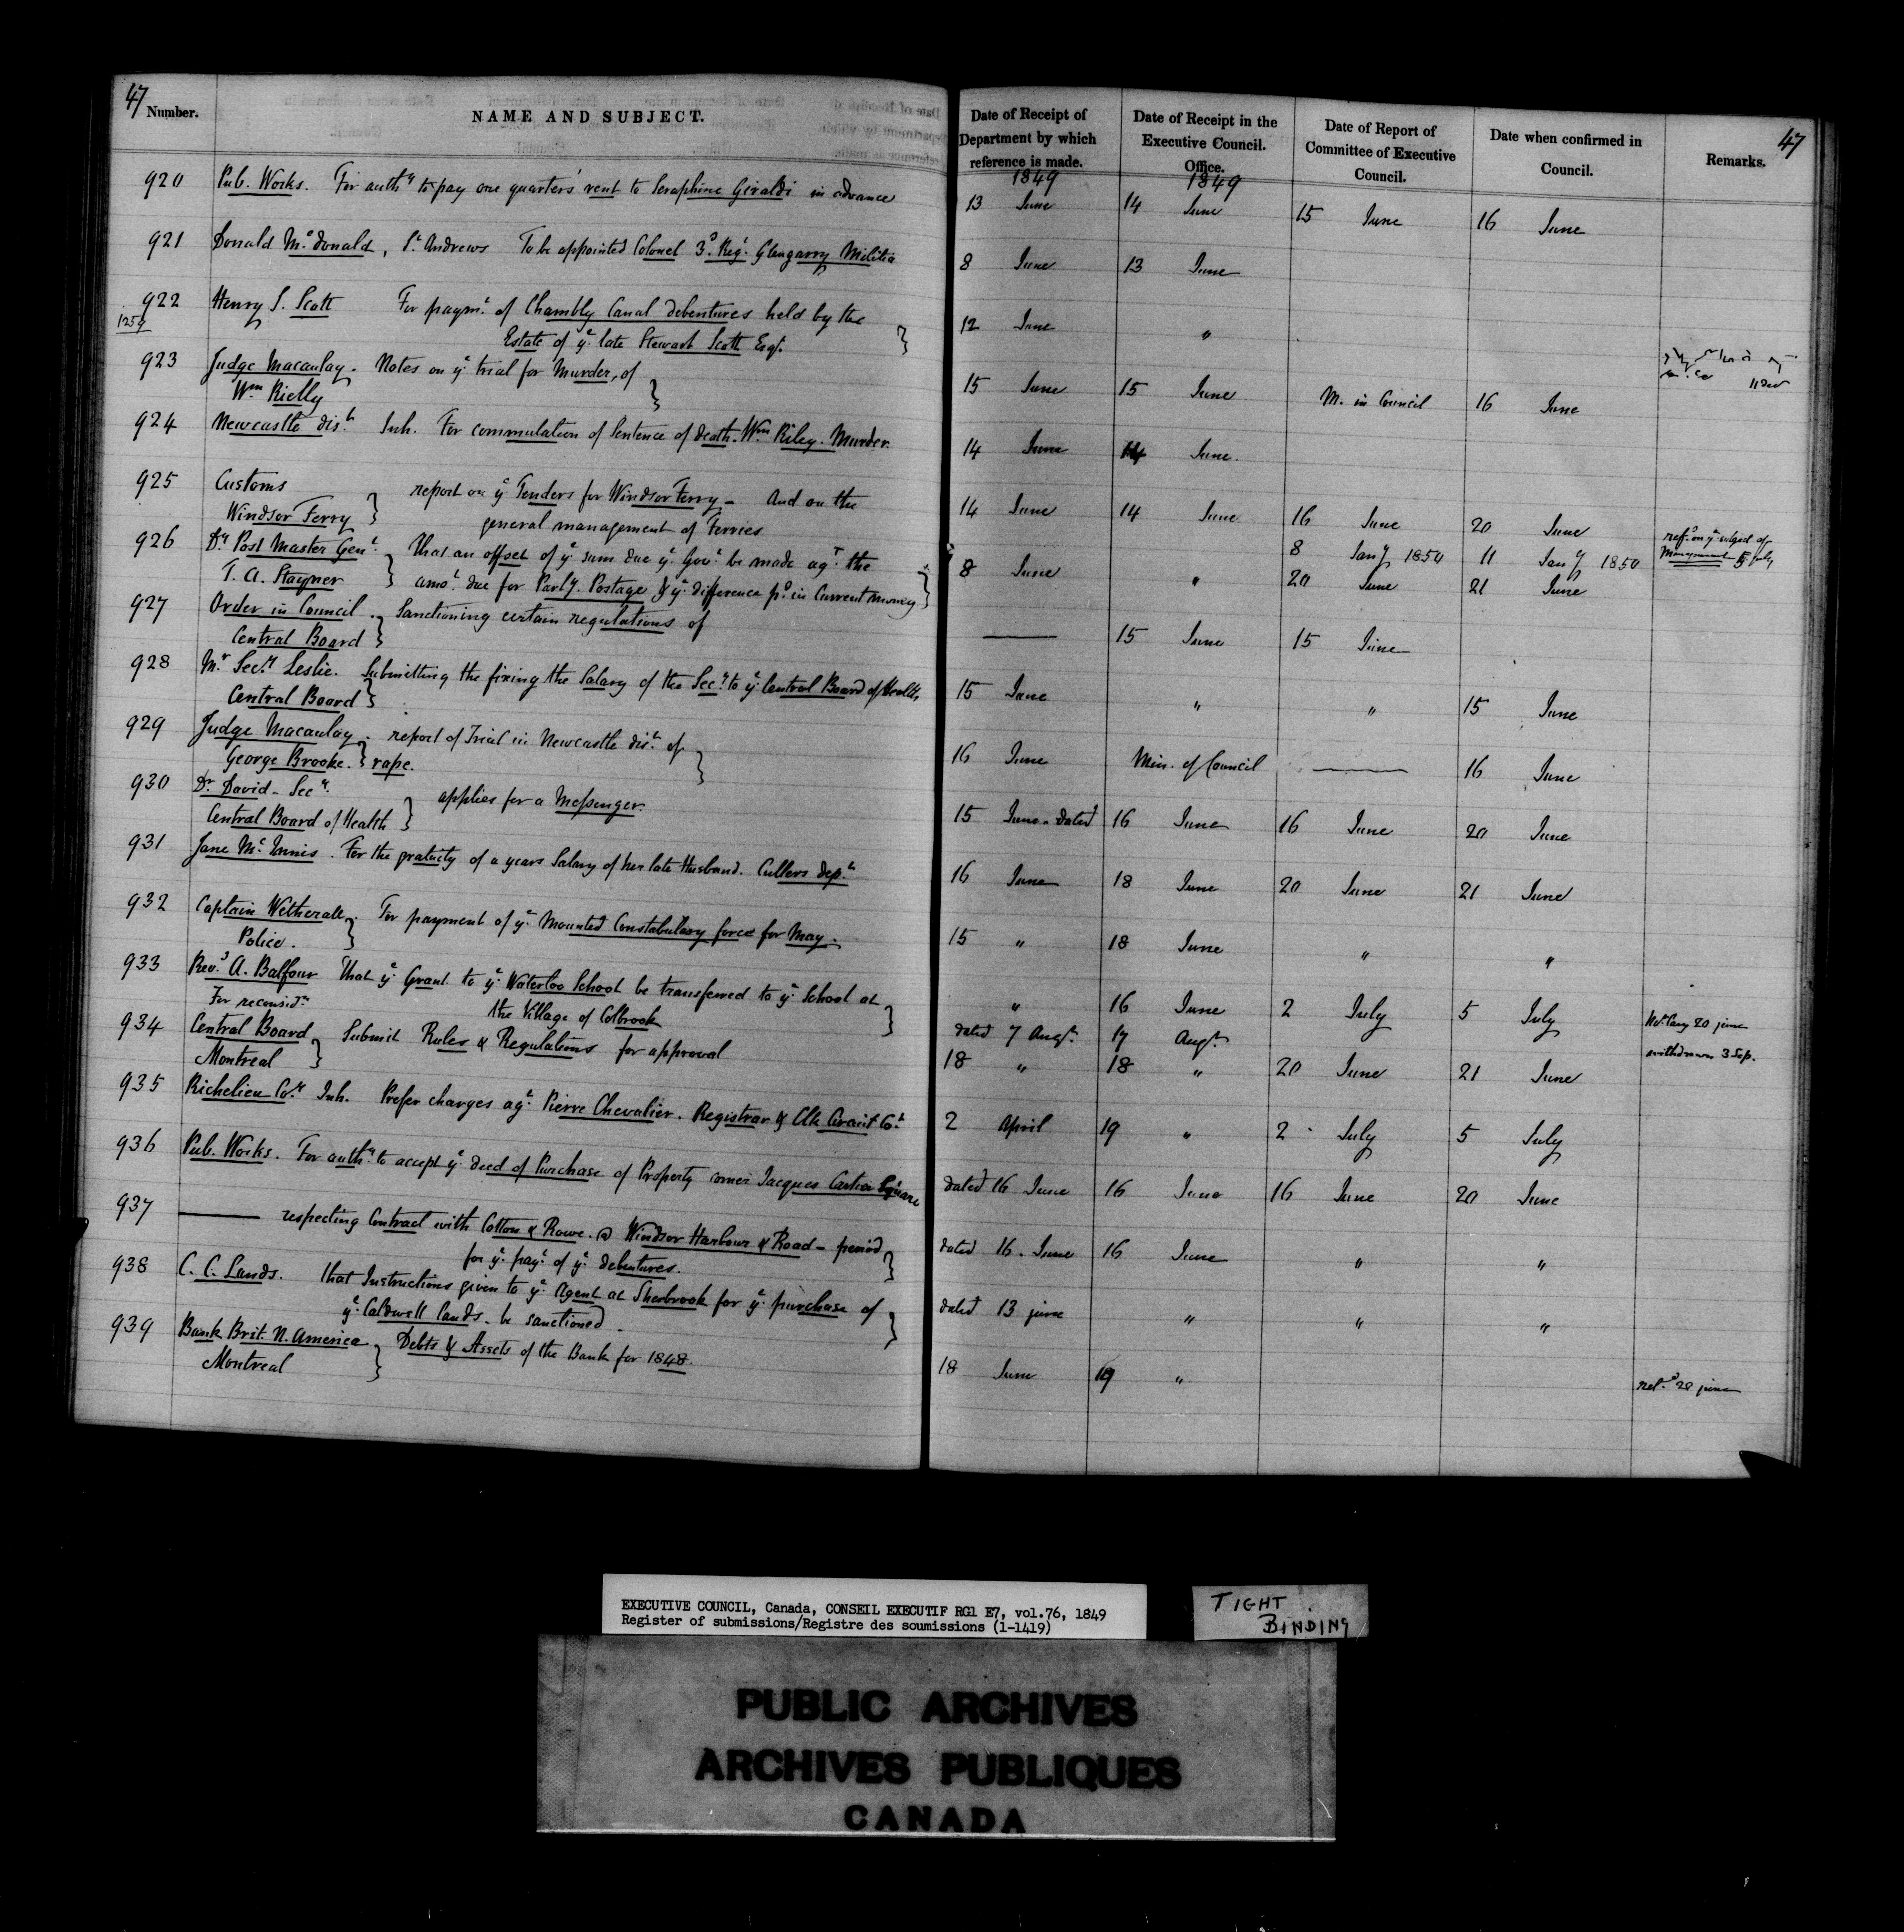 47 Number. NAME AND SUBJECT. Date of Receipt of Department by which reference is made. Date of Receipt in the Executive Council. Office. Date of Report of Committee of Executive Council. Date when confirmed in Council. Remarks. 47
1849 1849
920 Pub. Works. For authy to pay one quarters' rent to Seraphine Giraldi in advance 13 June 14 June 15 June 16 June
921 Donald McDonald, St Andrews To be appointed Colonel 3d Regt Glengarry Militia 8 June 13 June
922 Henry S. Scott For paymt of Chambly Canal debentures held by the 12 June "
1259 Estate of ye late Stewart Scott Esqr. }
923 Judge Macaulay. Notes on ye trial for Murder, of 15 June 15 June M. in Council 16 June 11 Dec
Wm Rielly }
924 Newcastle dist Inh. For commutation of Sentence of death. Wm Riley. Murder. 14 June 14 June.
925 Customs report on ye Tenders for Windsor Ferry - And on the 14 June 14 June 16 June 20 June
Windsor Ferry } general management of Ferries 8 Jany 1850 11 Jany 1850 refd on ye subject of Management 5 July
926 Dy Post Master Genl. That an offset of ye sum due ye Govt be made agt the 8 June " 20 June 21 June
T. A. Stayner } amot due for Parly. Postage & ye difference pd in Current money }
927 Order in Council. Sanctioning certain regulations of —— 15 June 15 June
Central Board }
928 Mr Secy Leslie. Submitting the fixing the Salary of the Secy to ye Central Board of Health, 15 June " " 15 June
Central Board }
929 Judge Macaulay. report of Trial in Newcastle dist of 16 June Min. of Council —— 16 June
George Brooke. } rape. }
930 Dr David - Secy. applies for a Messenger. 15 June. dated 16 June 16 June 20 June
Central Board of Health }
931 Jane McInnis. For the gratuity of a years Salary of her late Husband. Cullers dept 16 June 18 June 20 June 21 June
932 Captain Wetherall. For payment of ye Mounted Constabulary force for May. 15 " 18 June " "
Police. }
933 Revd A. Balfour That ye Grant to ye Waterloo School be transferred to ye School at " 16 June 2 July 5 July 20 june
For reconsidn the Village of Colbrook } dated 7 Augt. 17 Augt. withdrawn 3 Sep.
934 Central Board Submit Rules & Regulations for approval 18 " 18 " 20 June 21 June
Montreal }
935 Richelieu Coy Inh. Prefer charges agt Pierre Chevalier. Registrar & Clk Circuit Ct 2 April 19 " 2 July 5 July
936 Pub. Works. For authy to accept ye deed of Purchase of Property corner Jacques Cartier Square dated 16 June 16 June 16 June 20 June
937 —— respecting Contract with Cotton & Rowe. @ Windsor Harbour & Road - period dated 16. June 16 June " "
for ye payt of ye debentures. }
938 C. C. Lands. that Instructions given to ye Agent at Sherbrook for ye purchase of dated 13 june " " "
ye Caldwell lands. be sanctioned. }
939 Bank Brit. N. America Debts & Assets of the Bank for 1848. 18 June 19 " retd 20 june
Montreal }
EXECUTIVE COUNCIL, Canada, CONSEIL EXECUTIF RG1 E7, vol.76, 1849
Register of submissions/Registre des soumissions (1-1419)
TIGHT BINDING
PUBLIC ARCHIVES
ARCHIVES PUBLIQUES
CANADA